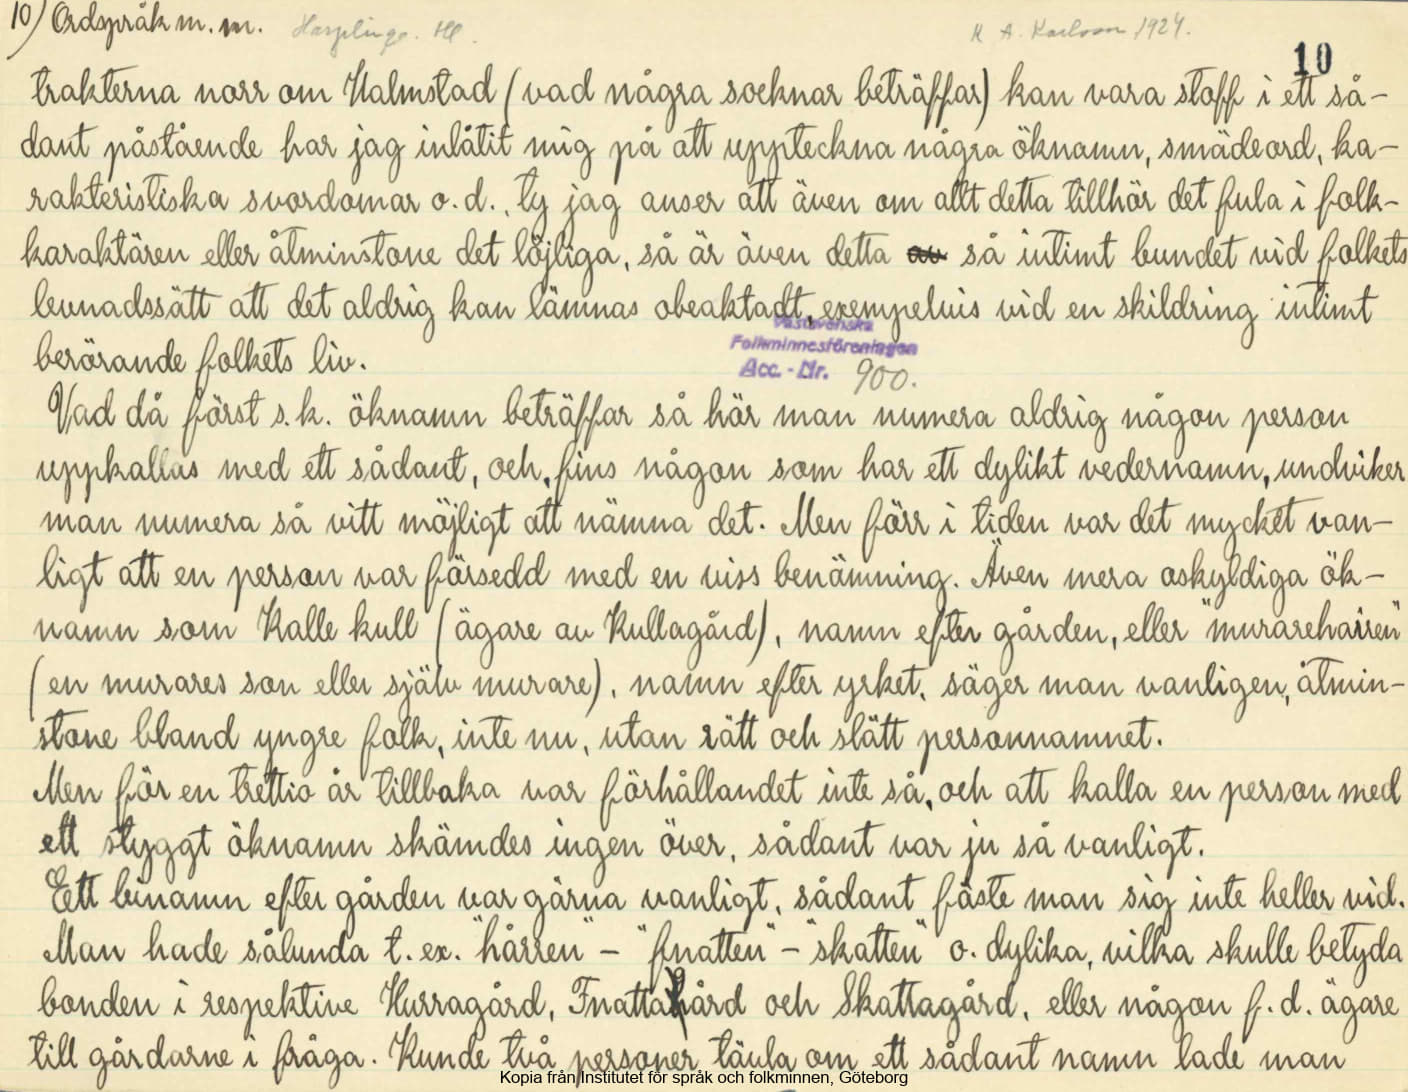 10) Ordspråk m. m. Harplinge. Hl. K A. Karlsson 1924.
10
trakterna norr om Halmstad (vad några socknar beträffar) kan vara stoff i ett så-
dant påstående har jag inlåtit mig på att uppteckna några öknamn, smädeord, ka-
rakteristiska svordomar o. d., ty jag anser att även om allt detta tillhör det fula i folk-
karaktären eller åtminstone det löjliga, så är även detta av så intimt bundet vid folkets
levnadssätt att det aldrig kan lämnas obeaktadt, exempelvis vid en skildring intimt
berörande folkets liv.
Västsvenska
Folkminnesföreningen
Acc. - Nr. 900.
Vad då först s. k. öknamn beträffar så hör man numera aldrig någon person
uppkallas med ett sådant, och, fins någon som har ett dylikt vedernamn, undviker
man numera så vitt möjligt att nämna det. Men förr i tiden var det mycket van-
ligt att en person var försedd med en viss benämning. Även mera oskyldiga ök-
namn som Kalle kull (ägare av Kullagård), namn efter gården, eller "murareharren"
(en murares son eller själv murare), namn efter yrket, säger man vanligen, åtmin-
stone bland yngre folk, inte nu, utan rätt och slätt personnamnet.
Men för en trettio år tillbaka var förhållandet inte så, och att kalla en person med
ett styggt öknamn skämdes ingen över, sådant var ju så vanligt.
Ett binamn efter gården var gärna vanligt, sådant fäste man sig inte heller vid.
Man hade sålunda t. ex. "hårren" - "fnatten" - "skatten" o. dylika, vilka skulle betyda
bonden i respektive Hurragård, Fnattagård och Skattagård, eller någon f. d. ägare
till gårdarne i fråga. Kunde två personer tävla om ett sådant namn lade man
Kopia från Institutet för språk och folkminnen, Göteborg